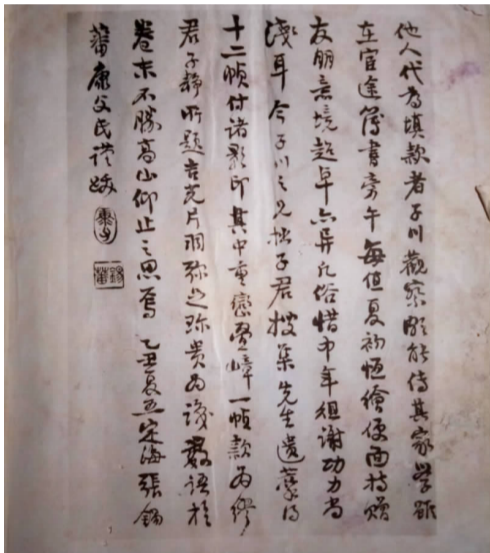 他人代为填款者子川观察颇能传其家学虽
在官途簿书旁午每值夏初恒绘便面持赠
友朋意境超卓亦异凡俗惜中年徂谢功力尚
浅耳今子川之兄拙子君搜集先生遗蒙得
十二帧付诸影印其中重峦叠嶂一帧款为缪
君子静所题吉光片羽弥足珍贵为议数语于
卷末不胜高山仰止之思焉 乙丑夏五定海张锡
蕃康父氏谨跋